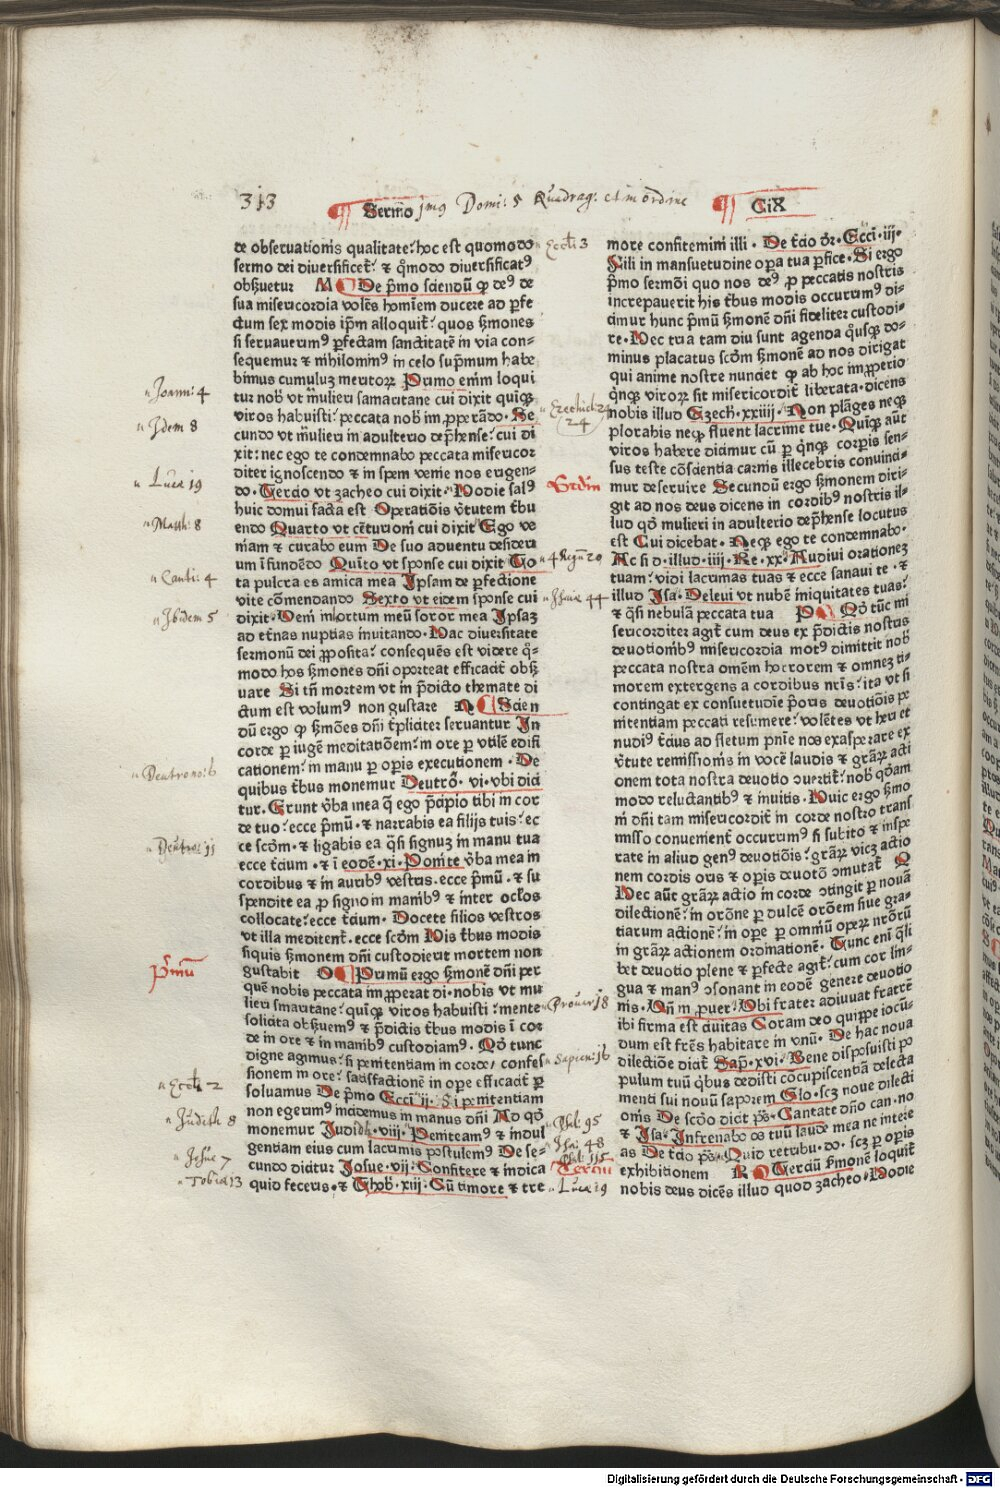 313
Sermo jmꝰ Domi: 5 Quadrag: et in ordine
CiX
de obseruationis qualitate: hoc est quomodo
sermo dei diuersificet̉: ⁊ q̊modo diuersificatꝰ
obẜuetur M De p̄mo sciendū ꝙ deꝰ de
sua misericordia volēs hominem ducere ad ꝑfe
ctum sex modis ip̄m alloquit̉: quos ẜmones
si seruauerimꝰ ꝑfectam sanctitatē in via con-
sequemur ⁊ nihilominꝰ in celo sup̄mum habe
bimus cumuluꝫ meritoꝝ Primo enim loqui
tur nob̄ vt m̄ulieri samaritane cui dixit quiqꝫ
viros habuisti: peccata nob̄ im ꝓperādo. Se
cundo vt m̄ulieri in adulterio dep̄hense: cui di
xit: nec ego te condemnabo peccata misericor
diter ignoscendo ⁊ in spem venie nos erigen-
do. Tercio vt zacheo cui dixit. Hodie salꝰ
huic domui facta est Operatiōis v̓tutem t̓bu
endo Quarto vt cēturioni cui dixit Ego ve
niam ⁊ curabo eum De suo aduentu desideri
um īfundēdo Quīto vt sponse cui dixit To
ta pulcra es amica mea Ipsam de ꝑfectione
vite cōmendando Sexto vt eidem sponse cui
dixit. Veni in hortum meū soror mea Ipsaꝫ
ad et̓nas nuptias inuitando. Hac diuersitate
sermonū dei ꝓposita: consequēs est videre q̊-
modo hos ẜmones dn̄i oporteat efficacit̓ obẜ
uare Si tn̄ mortem vt in p̄dicto themate di
ctum est volumꝰ non gustare N Scien
dū ergo ꝙ ẜmōes dn̄i t̓pliciter seruantur In
corde ꝑ iugē meditatiōem: in ore ꝑ vtilē edifi
cationem: in manu ꝑ oꝑis executionem. De
quibus t̓bus monemur Deutro̊. vi. vbi dici
tur. Erunt v̓ba mea q̄ ego p̄cipio tibi in cor
de tuo: ecce p̄mū. ⁊ narrabis ea filijs tuis: ec
ce scōm. ⁊ ligabis ea q̄si signuꝫ in manu tua
ecce t̓cium. ⁊ ī eodē. xi. Ponite v̓ba mea in
cordibus ⁊ in auribꝰ vestris. ecce p̄mū. ⁊ su
spendite ea ꝓ signo in manibꝰ ⁊ inter oc̄los
collocate: ecce t̓cium. Docete filios vestros
vt illa meditent̉. ecce scōm His t̓bus modis
siquis ẜmonem dn̄i custodierit mortem non
gustabit O Primū ergo ẜmonē dn̄i per
quē nobis peccata im ꝓperat di. nobis vt mu
lieri smaritane: quīqꝫ viros habuisti: mente
solicita obẜuemꝰ ⁊ p̄dictis t̓bus modis ī cor
de in ore ⁊ in manibꝰ custodiamꝰ. Qd̊ tunc
digne agimus: si penitentiam in corde, confes
sionem in ore: satisfactionē in oꝑe efficacit̓ ꝑ
soluamus De p̄mo Ecci. ij. Si penitentiam
non egerimꝰ incidemus in manus dn̄i Ad qd̊
monemur Iudith. viij. Peniteamꝰ ⁊ indul
gentiam eius cum lacrimis postulemꝰ De se-
cundo dicitur Josue. vij. Confitere ⁊ indica
quid feceris. ⁊ Thob. xiij. Cū timore ⁊ tre
Joann: 4
Idem 8
Lucæ 19
Matth: 8
Canti: 4
Ibidem 5
Deutrono: 6
Deutro: 11
P̊mū
Eccli 2
Judith 8
Josue 7
Tobiæ 13
more confitemini illi. De t̓cio dr̄. Ecci. iij.
Fili in mansuetudine oꝑa tua ꝑfice. Si ergo
p̄mo sermōi quo nos deꝰ ꝓ peccatis nostris
increpauerit his t̓bus modis occurrimꝰ di-
cimur hunc p̄mū ẜmonē dn̄i fideliter custodi-
re. Nec tria tam diu sunt agenda q̊usqꝫ do-
minus placatus scōm ẜmonē ad nos dirigat
qui anime nostre nunciet ꝙ ab hoc im ꝓperio
qn̄qꝫ viroꝝ sit misericordit̓ liberata. dicens
nobis illud Ezech. xxiiij. Non plāges neqꝫ
plorabis neqꝫ fluent lacrime tue. Quīqꝫ aūt
viros habere dicimur cū ꝑ qn̄qꝫ corꝑis sen-
sus teste cōscientia carnis illecebris conuinci-
mur deseruire Secundū ergo ẜmonem diri-
git ad nos deus dicens in cordibꝰ nostris il-
lud qd̊ mulieri in adulterio dep̄hense locutus
est Cui dicebat. Neqꝫ ego te condemnabo.
Ac si d. illud. iiij. Re. xx. Audiui orationeꝫ
tuam: vidi lacrimas tuas ⁊ ecce sanaui te. ⁊
illud Isa. Deleui vt nubē iniquitates tuas:
⁊ q̄si nebulā peccata tua P Qd̊ tūc mi
sericorditer agit̓ cum deus ex p̄dictis nostris
deuotionibꝰ misericordia motꝰ dimittit nob̄
peccata nostra omēm horrorem ⁊ omneꝫ ti-
morem extergens a cordibus nr̄is: ita vt si
contingat ex consuetudīe p̄oris deuotiōis pe
nitentiam peccati resumere: volētes vt heu et
nudiꝰ t̓cius ad fletum pn̄ie nos exasperare ex
v̓tute remissionis in vocē laudis ⁊ gr̄aꝝ acti
onem tota nostra deuotio ꝯuertit̉: nob̄ qd̊am
modo reluctantibꝰ ⁊ inuitis. Huic ergo ẜmo
ni dn̄i tam misericordit̓ in corde nostro trans
misso conuenient̓ occurrimꝰ si subito ⁊ inspe
rate in aliud genꝰ deuotiōis: gr̄aꝝ viꝫ actio
nem cordis oris ⁊ oꝑis deuotō ꝯmutat̉ Q
Hec aūt gr̄aꝝ actio in corde ꝯtingit ꝑ nouā
dilectionē: in orōne ꝑ dulcē orōem siue gra-
tiarum actionē: in oꝑe ꝑ omniū oꝑeꝝ nr̄orū
in gr̄aꝝ actionem ordinationē. Tunc eni q̄li
bet deuotio plene ⁊ ꝑfecte agit̓: cum cor lin-
gua ⁊ manꝰ ꝯsonant in eodē genere deuotio
nis. Vn̄ in ꝓuer: Vbi frater adiuuat fratrē
ibi firma est ciuitas Coram deo quippe iocū-
dum est fr̄es habitare in vnū. De hac noua
dilectiōe dicit̓ Sap̄. xvi. Bene disposuisti po
pulum tuū q̓bus dedisti cōcupiscentiā delecta
menti sui nouū saporem Glo. scꝫ noue dilecti
onis De scōo dicit ps̄. Cantate dn̄o can. no
⁊ Isa. Infrenabo os tuū laude mea ne intere
as De t̓cio ps̄. Quid retribu. do. scꝫ ꝑ oꝑis
exhibitionem R Terciū ẜmonē loquit̉
nobis deus dicēs illud quod zacheo. Hodie
Eccli 3
Ezechiel: 24
24
Scdm̄
4 Regū 20
Isaiæ 44
Prouer: 18
Sapien: 16
Psal: 95
Isai: 48
Psal: 115
Terciū
Lucæ 19
Digitalisierung gefördert durch die Deutsche Forschungsgemeinschaft - DFG